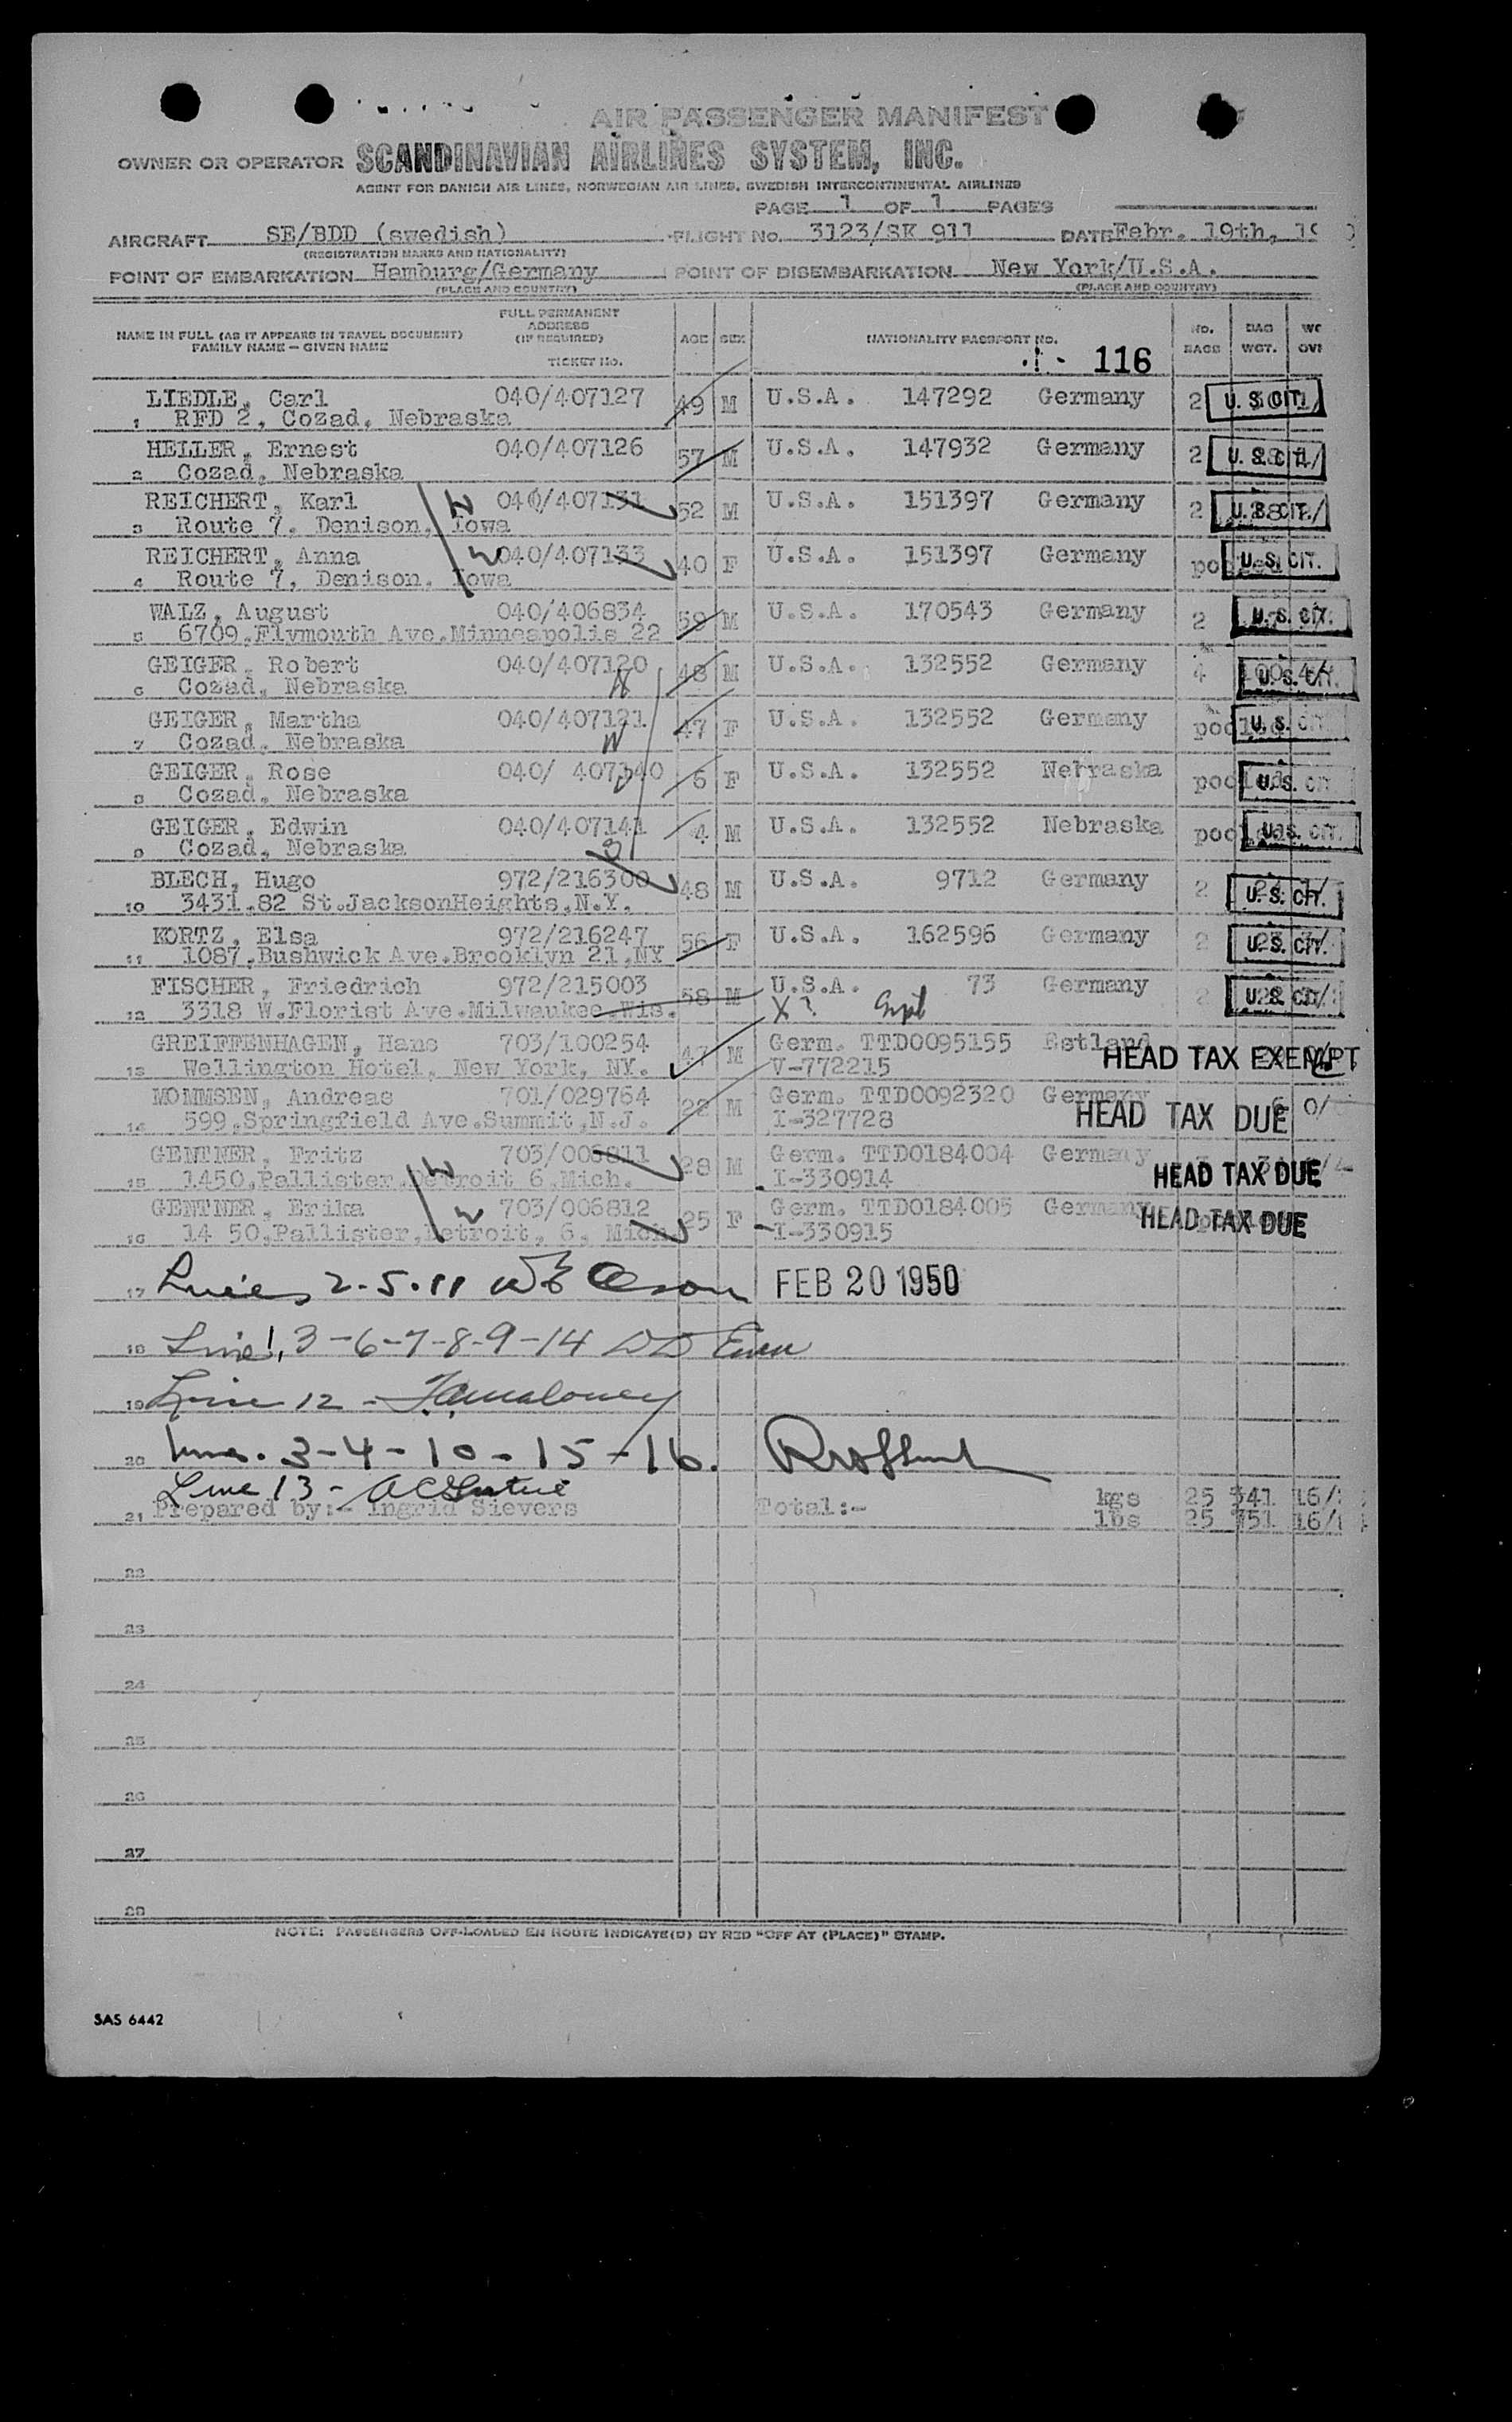 AIR PASSENGER MANIFEST
OWNER OR OPERATOR SCANDINAVIAN AIRLINES SYSTEM, INC.
AGENT FOR DANISH AIR LINES, NORWEGIAN AIR LINES, SWEDISH INTERCONTINENTAL AIRLINES
PAGE 1 OF 1 PAGES
AIRCRAFT SE/BDD (swedish) FLIGHT No. 3123/SK 911 DATE Febr. 19th, 19
(REGISTRATION MARKS AND NATIONALITY)
POINT OF EMBARKATION Hamburg/Germany POINT OF DISEMBARKATION New York/U.S.A.
(PLACE AND COUNTRY) (PLACE AND COUNTRY)
NAME IN FULL (AS IT APPEARS IN TRAVEL DOCUMENT) FAMILY NAME – GIVEN NAME FULL PERMANENT ADDRESS (IF REQUIRED) TICKET No. AGE SEX NATIONALITY PASSPORT NO. NO. BAGS BAG WGT.
116
LIEDLE, Carl 040/407127 49 M U.S.A. 147292 Germany 2 U. S. CIT.
1 RFD 2, Cozad, Nebraska
HELLER, Ernest 040/407126 57 M U.S.A. 147932 Germany 2 U. S. CIT.
2 Cozad, Nebraska
REICHERT, Karl 040/407131 52 M U.S.A. 151397 Germany 2 U. S. CIT.
3 Route 7, Denison, Iowa
REICHERT, Anna 040/407133 40 F U.S.A. 151397 Germany U. S. CIT.
4 Route 7, Denison, Iowa
WALZ, August 040/406834 59 M U.S.A. 170543 Germany 2 U. S. CIT.
5 6709,Plymouth Ave.Minneapolis 22
GEIGER, Robert 040/407120 48 M U.S.A. 132552 Germany 4 U. S. CIT.
6 Cozad, Nebraska
GEIGER, Martha 040/407121 47 F U.S.A. 132552 Germany pooled U. S. CIT.
7 Cozad, Nebraska
GEIGER, Rose 040/ 407140 6 F U.S.A. 132552 Nebraska pooled U. S. CIT.
8 Cozad, Nebraska
GEIGER, Edwin 040/407141 4 M U.S.A. 132552 Nebraska pooled U. S. CIT.
9 Cozad, Nebraska
BLECH, Hugo 972/216300 48 M U.S.A. 9712 Germany 2 U. S. CIT.
10 3431,82 St.JacksonHeights,N.Y.
KORTZ, Elsa 972/216247 56 F U.S.A. 162596 Germany 2 U. S. CIT.
11 1087,Bushwick Ave.Brooklyn 21,NY
FISCHER, Friedrich 972/215003 58 M U.S.A. 73 Germany 2 U. S. CIT.
12 3318 W.Florist Ave.Milwaukee.Wis. X?
GREIFFENHAGEN, Hans 703/100254 47 M Germ. TTD0095155 Estland HEAD TAX EXEMPT
13 Wellington Hotel, New York, NY. V-772215
MOMMSEN, Andreas 701/029764 22 M Germ. TTD0092320 Germany HEAD TAX DUE
14 599,Springfield Ave.Summit,N.J. I-327728
GENTNER, Fritz 703/006811 28 M Germ. TTD0184004 Germany HEAD TAX DUE
15 1450,Pallister,Detroit 6,Mich. I-330914
GENTNER, Erika 703/006812 25 F Germ. TTD0184005 Germany HEAD TAX DUE
16 14 50,Pallister,Detroit, 6, Mich I-330915
17 Lines 2-5-11 FEB 20 1950
18 Line 1, 3-6-7-8-9-14
19 Line 12 - Maloney
20 Lines. 3-4-10-15-16.
Line 13 -
21 Prepared by:- Ingrid Sievers Total:- kgs 25 341 16/
lbs 25 751 16/
22
23
24
25
26
27
28
NOTE: PASSENGERS OFF-LOADED EN ROUTE INDICATE(D) BY RED "OFF AT (PLACE)" STAMP.
SAS 6442